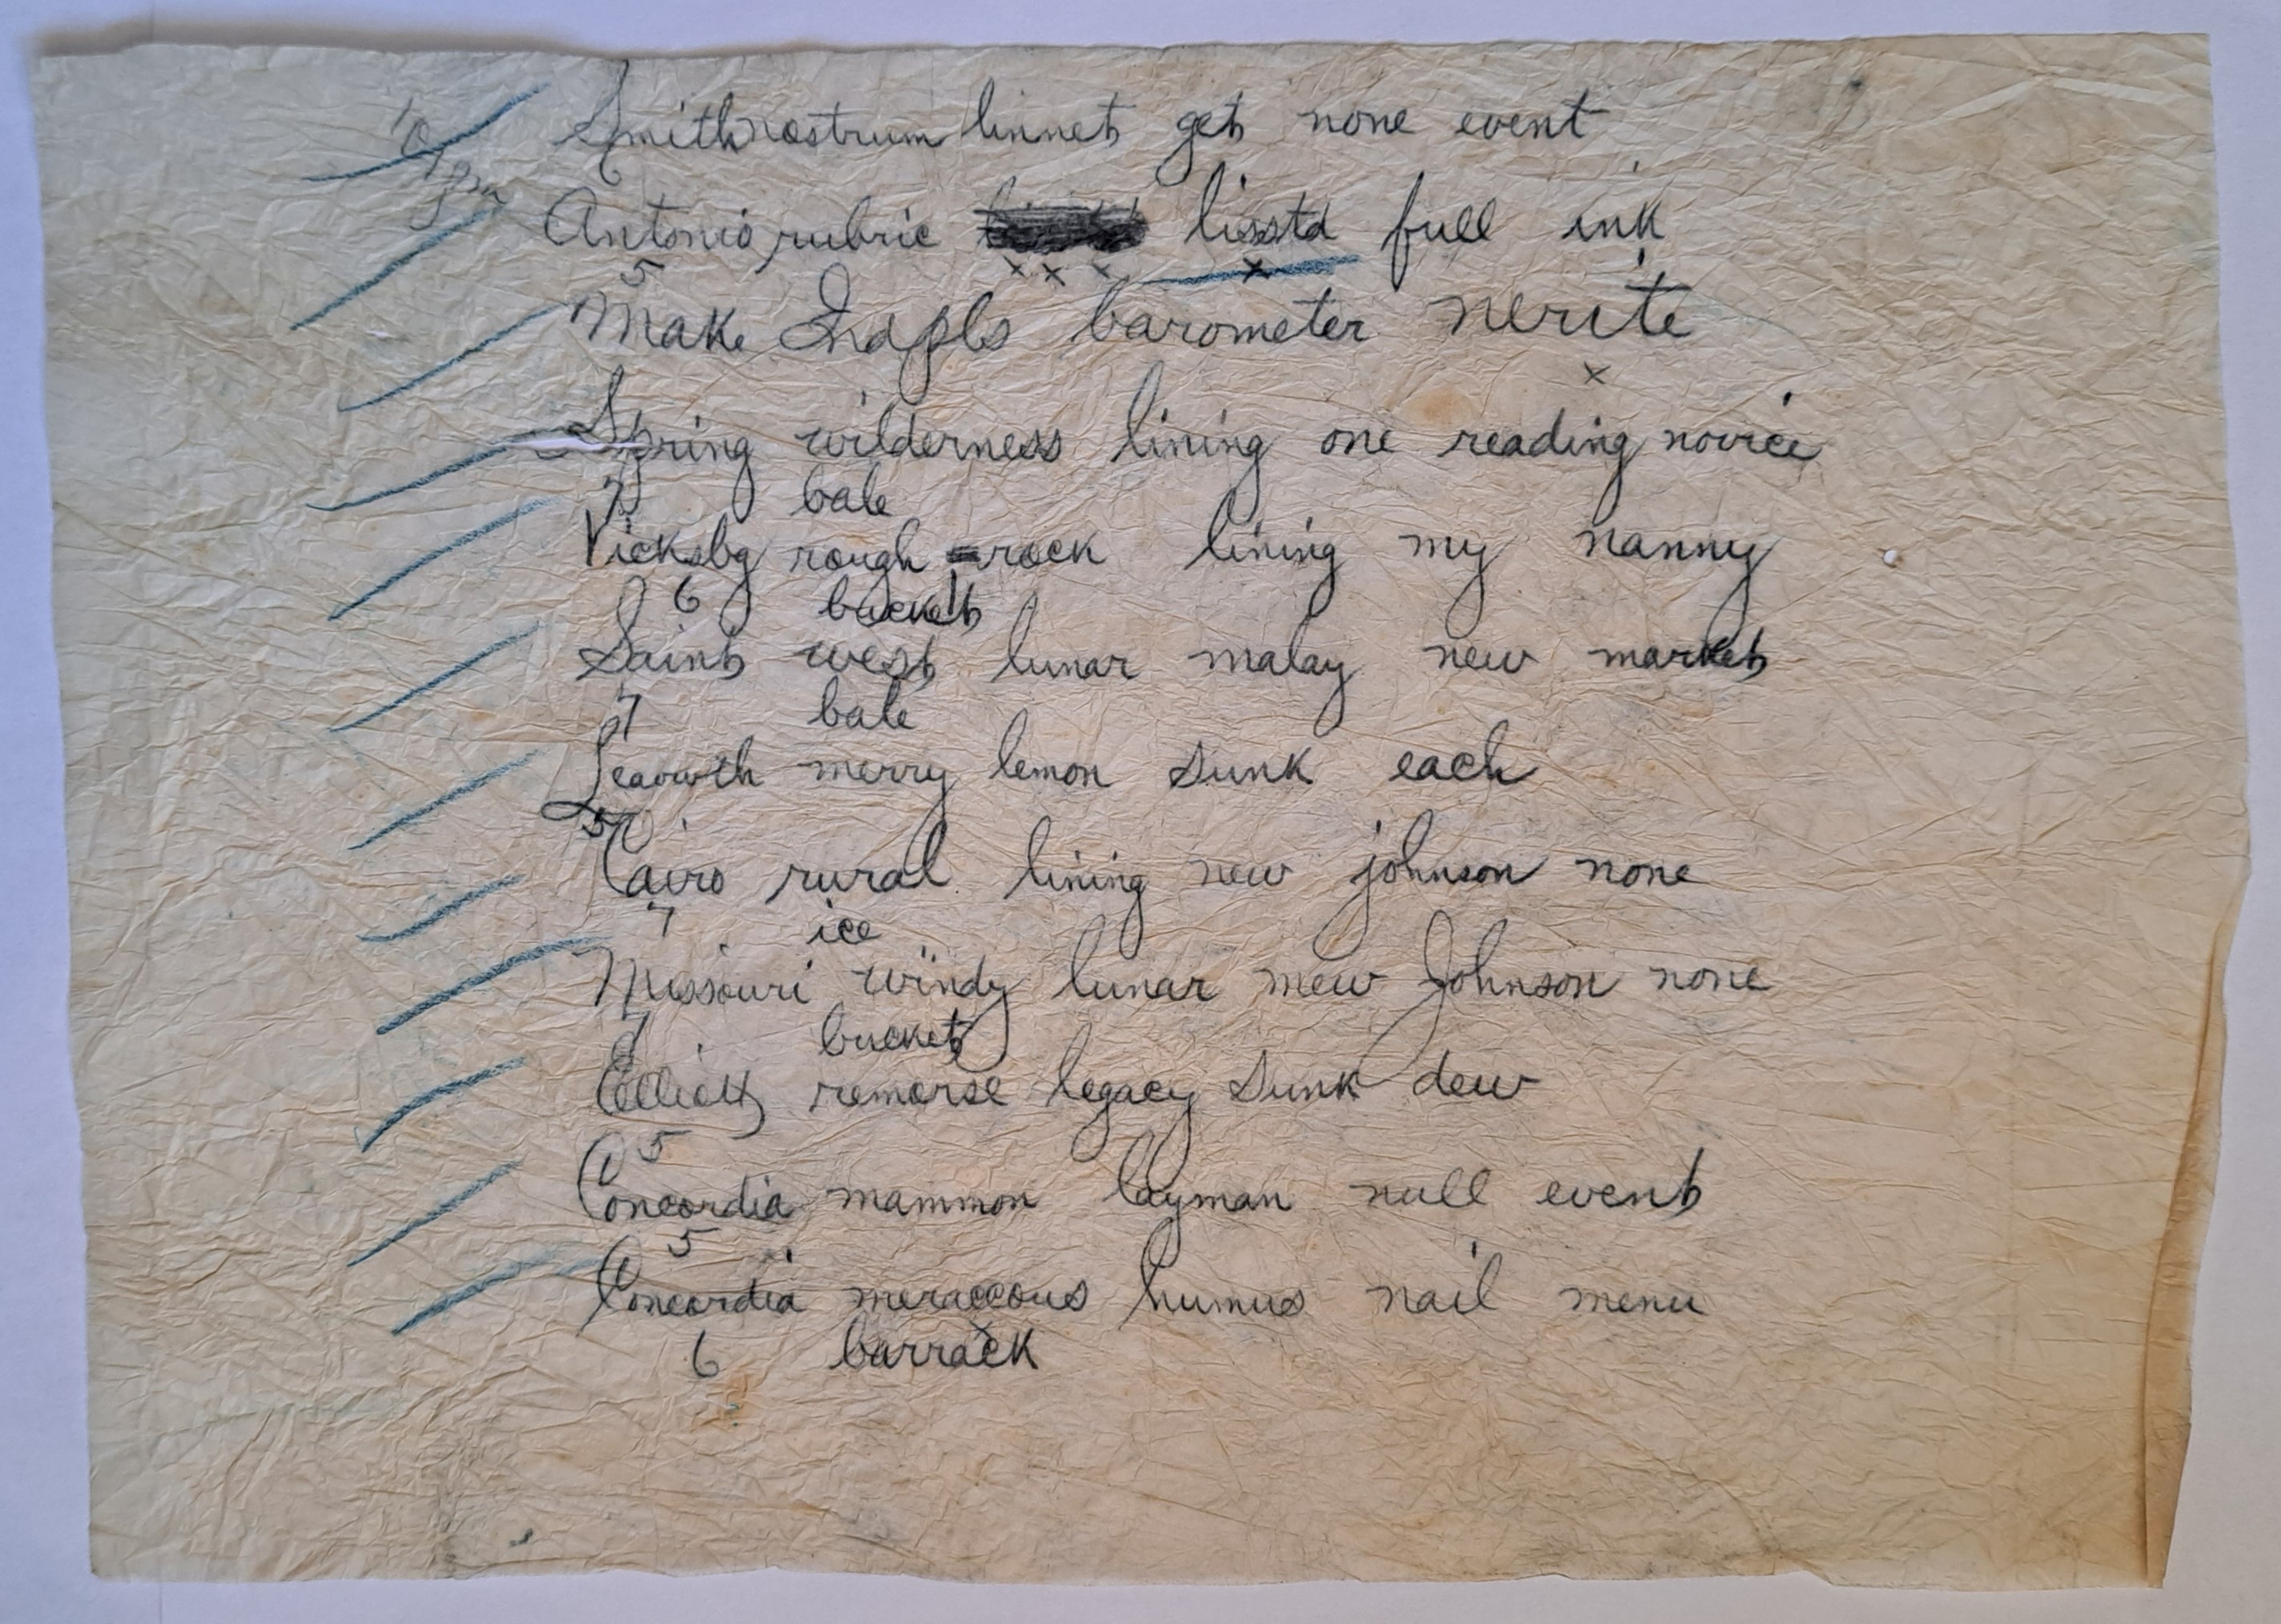 10 pm
Smith nostrum linnet get none event
Antonio rubric lisstd full ink
5
Make Inapls barometer nerite
Spring wilderness lining one reading novice
7 bale
Vicksbg rough rock lining my nanny
6 bucket
Saint west lunar malay new market
7 bale
Leavwth merry lemon sunk each
5
Cairo rural lining new johnson none
7 ice
Missouri windy lunar mew Johnson none
7 bucket
Elliott remorse legacy sunk dew
5
Concordia mammon layman null event
5
Concordia meraccous humus nail menu
6 barrack